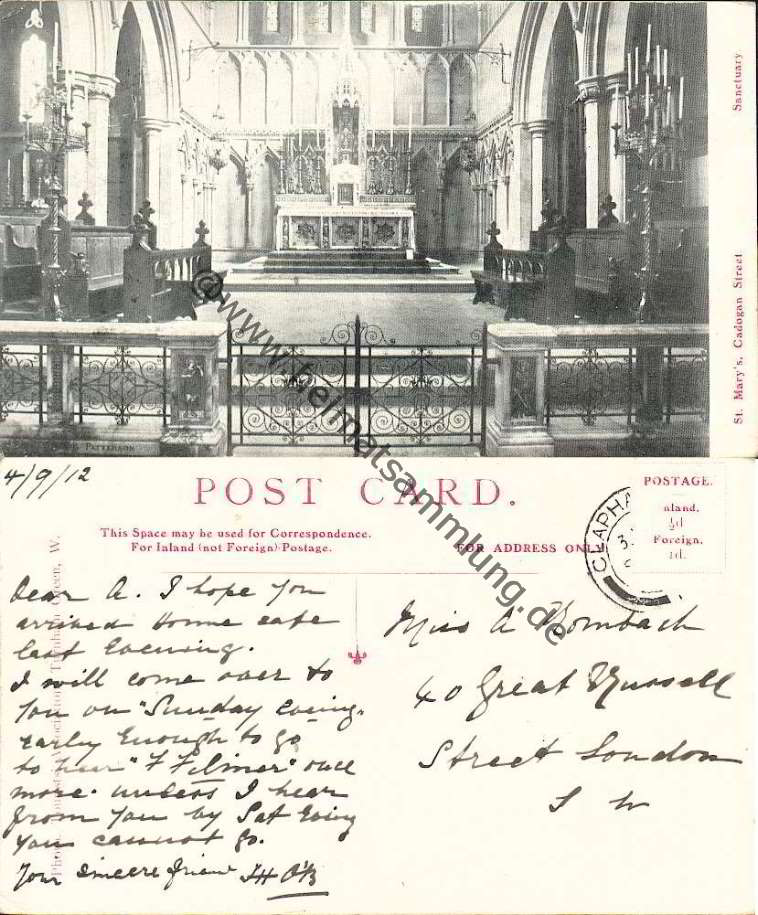 Sanctuary
St. Mary's, Cadogan Street
PATTERSON
@www.heimatsammlung.de
4/9/12
POST CARD.
This Space may be used for Correspondence.
For Inland (not Foreign) Postage.
FOR ADDRESS ONLY
POSTAGE.
nland.
½d
Foreign.
1d.
CLAPHA
Green, W.
Dear A. I hope you
arrived Home safe
last Evening.
I will come over to
you on "Sunday Eving.
early Enough to go
to hear "F Filmer" once
more. unless I hear
from you by Sat Eving
you cannot go.
Your sincere friend
Miss A Bombach
40 Great Russell
Street London
S W